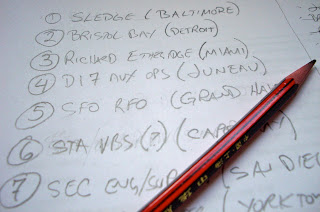 ① SLEDGE (BALTIMORE)
② BRISTOL BAY (DETROIT)
③ RICHARD ETHERIDGE (MIAMI)
④ D17 AUX OPS (JUNEAU)
⑤ SFO RFO (GRAND HAV
⑥ STA VBS (?) (CAPE MAY)
⑦ SEC ENG/SUP (SAN DIEG
(YORKTOW